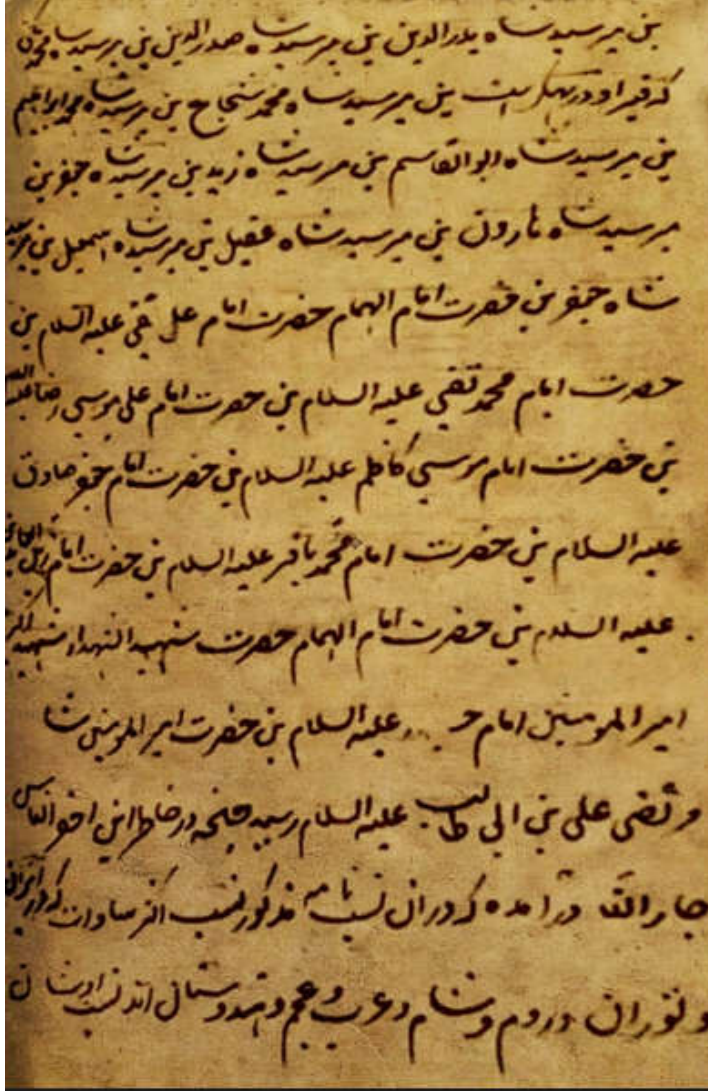 بن میر سید شاه بدرالدین بن میر سید شاه صدرالدین بن میر سید شاه محمد
که قبر او در است بن میر سید شاه محمد شجاع بن میر سید شاه محمد ابراهیم
بن میر سید شاه ابو القاسم بن میر سید شاه زید بن میر سید شاه جعفر بن
میر سید شاه هارون بن میر سید شاه عقیل بن میر سید شاه اسمعیل بن میر سید
شاه جعفر بن حضرت امام الهمام حضرت امام علی نقی علیه السلام بن
حضرت امام محمد تقی علیه السلام بن حضرت امام علی موسی رضا علیه السلام
بن حضرت امام موسی کاظم علیه السلام بن حضرت امام جعفر صادق
علیه السلام بن حضرت امام محمد باقر علیه السلام بن حضرت امام
علیه السلام بن حضرت امام الهمام حضرت شهید الشهداء شهید
امیر المومنین امام علیه السلام بن حضرت امیر المومنین شاه
مرتضی علی بن ابی طالب علیه السلام رسید چنانچه در خاطر این
در آمده که در ان نسب نامه مذکور نسب اکثر سادات که در ایران
و توران و روم و شام و عرب و عجم و هندوستان اند نسب ایشان